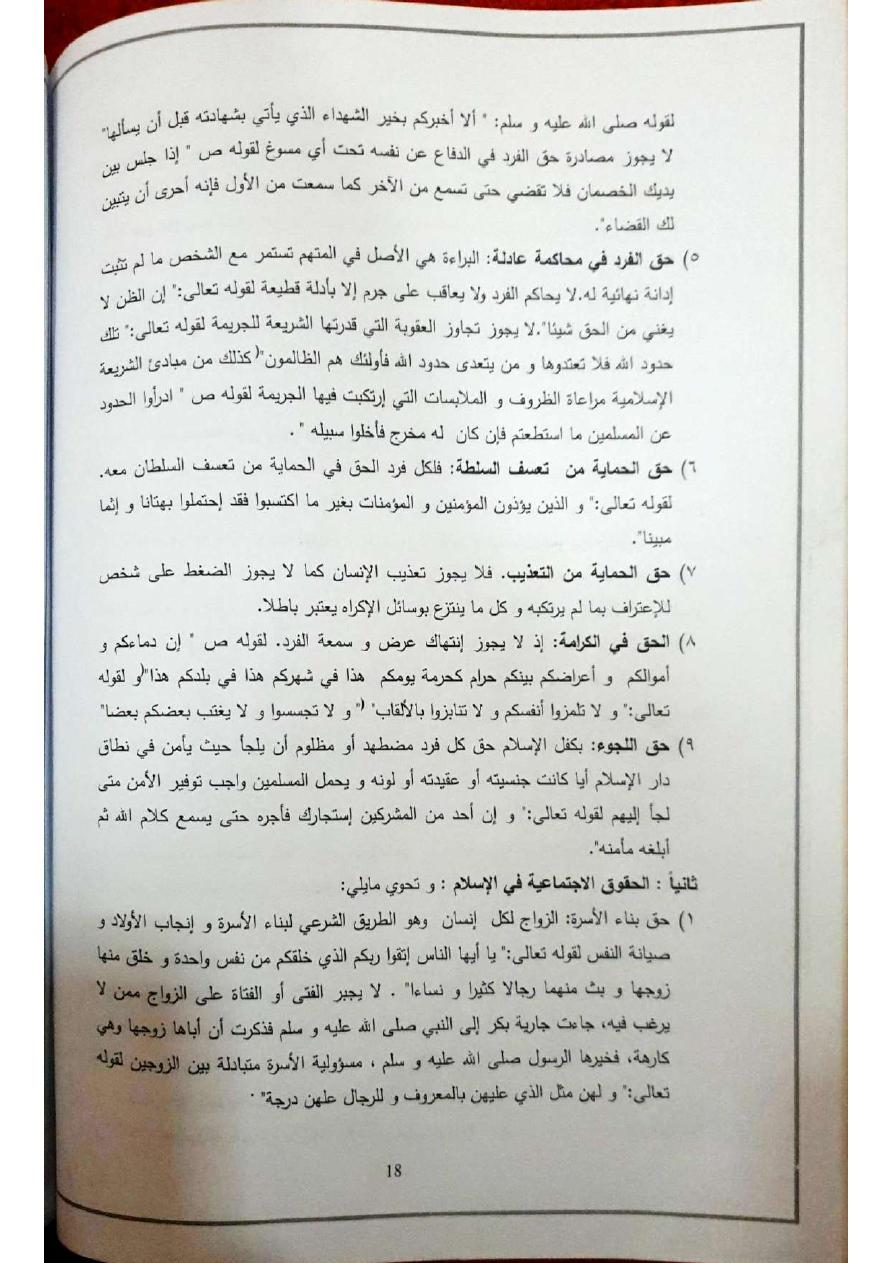 لقوله صلى الله عليه و سلم: " ألا أخبركم بخير الشهداء الذي يأتي بشهادته قبل أن يسألها"
لا يجوز مصادرة حق الفرد في الدفاع عن نفسه تحت أي مسوغ لقوله ص " إذا جلس بين
يديك الخصمان فلا تقضي حتى تسمع من الآخر كما سمعت من الأول فإنه أحرى أن يتبين
لك القضاء".
٥) حق الفرد في محاكمة عادلة: البراءة هي الأصل في المتهم تستمر مع الشخص ما لم تثبت
إدانة نهائية له.لا يحاكم الفرد ولا يعاقب على جرم إلا بأدلة قطيعة لقوله تعالى:" إن الظن لا
يغني من الحق شيئا".لا يجوز تجاوز العقوبة التي قدرتها الشريعة للجريمة لقوله تعالى:" تلك
حدود الله فلا تعتدوها و من يتعدى حدود الله فأولئك هم الظالمون"( كذلك من مبادئ الشريعة
الإسلامية مراعاة الظروف و الملابسات التي إرتكبت فيها الجريمة لقوله ص " ادرأوا الحدود
عن المسلمين ما استطعتم فإن كان له مخرج فأخلوا سبيله " .
٦) حق الحماية من تعسف السلطة: فلكل فرد الحق في الحماية من تعسف السلطان معه.
لقوله تعالى:" و الذين يؤذون المؤمنين و المؤمنات بغير ما اكتسبوا فقد إحتملوا بهتانا و إثما
مبينا".
٧) حق الحماية من التعذيب. فلا يجوز تعذيب الإنسان كما لا يجوز الضغط على شخص
للإعتراف بما لم يرتكبه و كل ما ينتزع بوسائل الإكراه يعتبر باطلا.
٨) الحق في الكرامة: إذ لا يجوز إنتهاك عرض و سمعة الفرد. لقوله ص " إن دماءكم و
أموالكم و أعراضكم بينكم حرام كحرمة يومكم هذا في شهركم هذا في بلدكم هذا"(و لقوله
تعالى:" و لا تلمزوا أنفسكم و لا تنابزوا بالألقاب" (" و لا تجسسوا و لا يغتب بعضكم بعضا"
٩) حق اللجوء: بكفل الإسلام حق كل فرد مضطهد أو مظلوم أن يلجأ حيث يأمن في نطاق
دار الإسلام أيا كانت جنسيته أو عقيدته أو لونه و يحمل المسلمين واجب توفير الأمن متى
لجأ إليهم لقوله تعالى:" و إن أحد من المشركين إستجارك فأجره حتى يسمع كلام الله ثم
أبلغه مأمنه".
ثانياً : الحقوق الاجتماعية في الإسلام : و تحوي مايلي:
١) حق بناء الأسرة: الزواج لكل إنسان وهو الطريق الشرعي لبناء الأسرة و إنجاب الأولاد و
صيانة النفس لقوله تعالى:" يا أيها الناس إتقوا ربكم الذي خلقكم من نفس واحدة و خلق منها
زوجها و بث منهما رجالا كثيرا و نساءا" . لا يجبر الفتى أو الفتاة على الزواج ممن لا
يرغب فيه، جاءت جارية بكر إلى النبي صلى الله عليه و سلم فذكرت أن أباها زوجها وهي
كارهة، فخيرها الرسول صلى الله عليه و سلم ، مسؤولية الأسرة متبادلة بين الزوجين لقوله
تعالى:" و لهن مثل الذي عليهن بالمعروف و للرجال علهن درجة" .
18